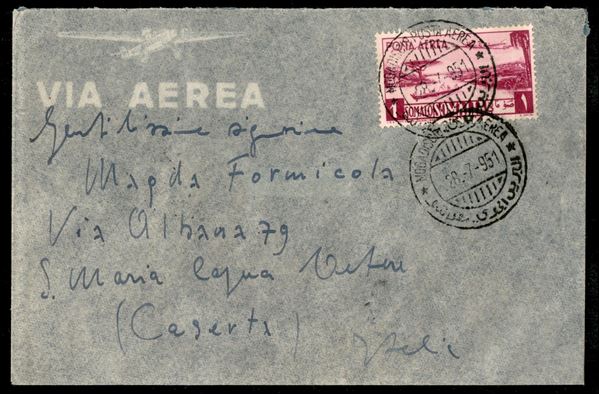 VIA AEREA
POSTA AEREA
1 SOMALO ١
MOGADISCIO POSTA AEREA
28-7-951
MOGADISCIO POSTA AEREA
28-7-951
Gentilissime signorine
Magda Formicola
Via Albana 79
S. Maria Capua Vetere
(Caserta)
Italia